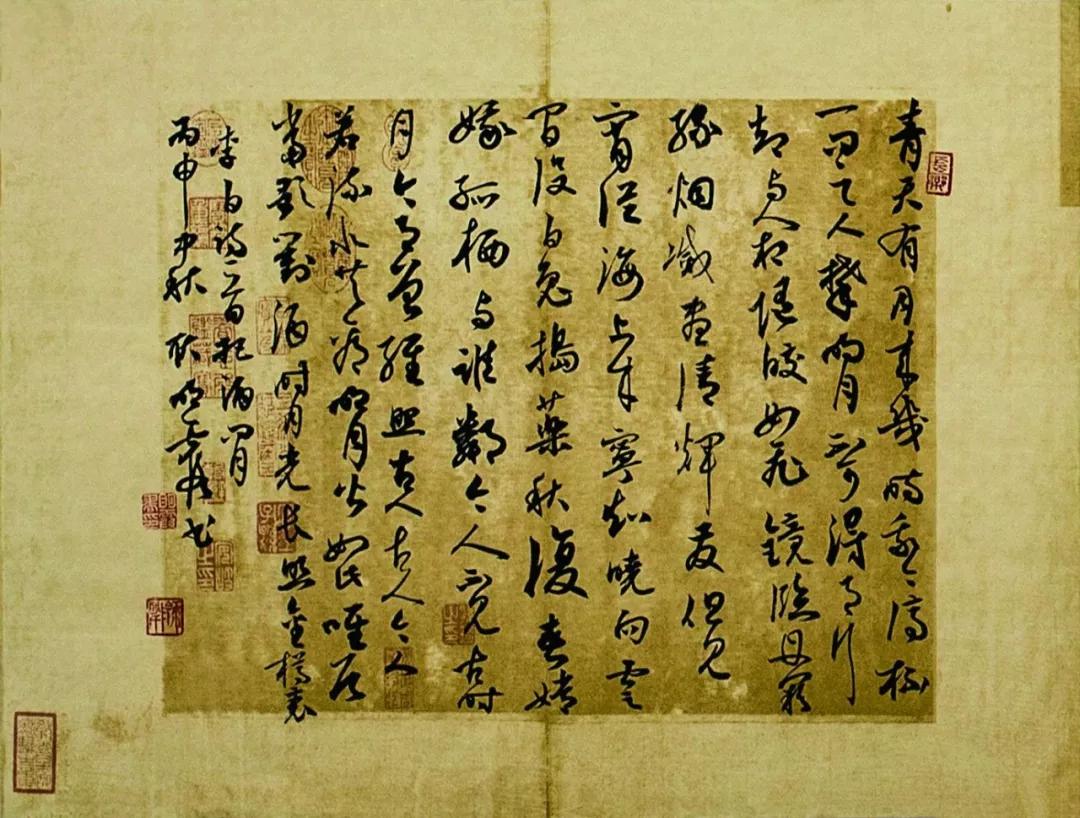 青天有月来幾时我今停杯
一问之人攀明月不可得月行
却与人相随皎如飛鏡臨丹闕
綠烟滅盡清輝發但见
宵從海上来寧知曉向雲
间没白兔搗藥秋復春嫦
娥孤栖与誰鄰今人不见古时
月今月曾經照古人古人今人
若流水共看明月皆如此唯愿
當歌對酒时月光长照金樽裏
李白詩一首把酒问月
丙申中秋 书